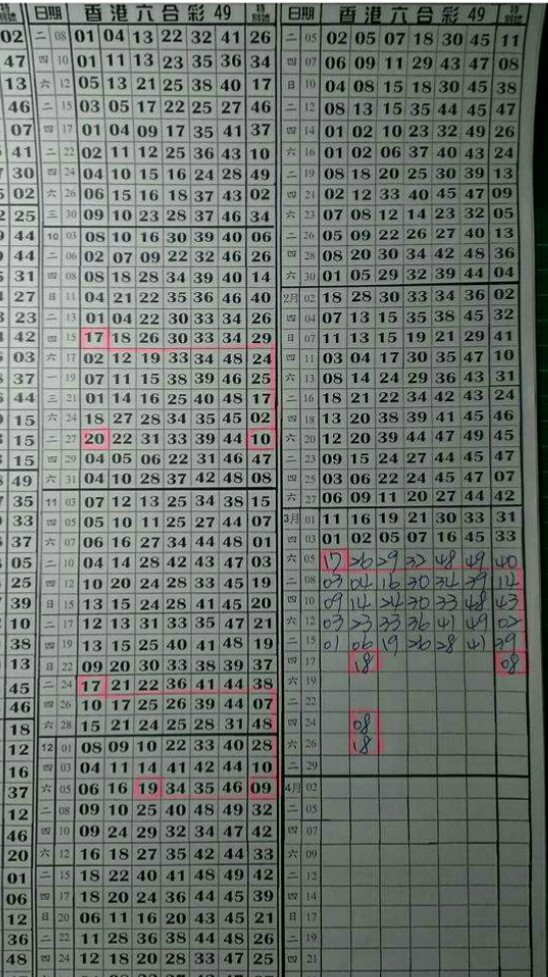 特別號 日期 香港六合彩 49 特別號
02 二 08 01 04 13 22 32 41 26
47 四 10 01 11 13 23 35 36 34
13 六 12 05 13 21 25 38 40 17
46 二 15 03 05 17 22 25 27 46
07 四 17 01 04 09 17 35 41 37
41 二 22 02 11 12 25 36 43 10
30 四 24 04 10 15 16 24 28 49
02 六 26 06 15 16 18 37 43 02
25 三 30 09 10 23 28 37 46 34
44 10 03 08 10 16 30 39 40 06
44 二 06 02 07 09 22 32 46 26
31 四 08 08 18 28 34 39 40 14
27 日 11 04 21 22 35 36 46 40
23 二 13 01 04 22 30 33 34 26
42 四 15 17 18 26 30 33 34 29
03 六 17 02 12 19 33 34 48 24
37 一 19 07 11 15 38 39 46 25
44 三 21 01 14 16 25 40 48 17
15 六 24 18 27 28 34 35 45 02
15 二 27 20 22 31 33 39 44 10
15 四 29 04 05 06 22 31 46 47
49 六 31 04 10 28 37 42 48 08
35 11 03 07 12 13 25 34 38 15
33 四 05 05 10 11 25 27 44 07
37 六 07 06 16 27 34 44 48 01
10 二 10 04 14 28 42 43 47 03
25 四 12 10 20 24 28 33 45 19
39 日 15 13 15 24 28 41 45 20
10 二 17 12 13 31 33 35 47 21
38 四 19 13 15 25 40 41 48 19
13 日 22 09 20 30 33 38 39 37
45 二 24 17 21 22 36 41 44 38
46 四 26 10 17 25 26 39 44 07
18 六 28 15 21 24 25 28 31 48
12 12 01 08 09 10 22 33 40 28
16 四 03 04 11 14 41 42 44 10
37 六 05 06 16 19 34 35 46 09
12 二 08 09 10 25 40 48 49 32
46 四 10 09 24 29 32 34 47 42
20 六 12 16 18 27 35 42 44 33
01 二 15 18 22 40 41 48 49 42
06 四 17 18 20 24 36 44 45 39
12 日 20 06 11 16 20 43 45 21
36 二 22 11 28 36 38 44 48 26
48 四 24 12 18 20 28 33 47 25
日期 香港六合彩 49 特別號
二 05 02 05 07 18 30 45 11
四 07 06 09 11 29 43 47 08
日 10 04 08 15 18 30 45 38
二 12 08 13 15 35 44 45 47
四 14 01 02 10 23 32 49 26
六 16 01 02 06 37 40 43 24
二 19 08 18 20 25 30 39 13
四 21 02 12 33 40 45 47 09
六 23 07 08 12 14 23 32 05
二 26 05 09 22 26 27 40 13
四 28 08 20 30 34 42 48 36
六 30 01 05 29 32 39 44 04
2月 02 18 28 30 33 34 36 02
四 04 07 13 15 35 38 45 32
日 07 11 13 15 19 21 29 41
四 11 03 04 17 30 35 47 10
六 13 08 14 24 29 36 43 31
二 16 18 21 22 34 42 43 24
四 18 13 20 38 39 41 45 46
六 20 12 20 39 44 47 49 45
二 23 09 15 24 27 44 45 47
四 25 03 06 22 24 45 47 07
六 27 06 09 11 20 27 44 42
3月 01 11 16 19 21 30 33 31
四 03 01 02 05 07 16 45 33
六 05 17 26 29 32 48 49 40
二 08 03 04 16 30 34 39 14
四 10 09 14 24 30 33 48 43
六 12 03 23 33 36 41 49 02
二 15 01 06 19 26 28 41 39
四 17 18 08
六 19
二 22
四 24 08
六 26 18
二 29
4月 02
二 05
四 07
六 09
二 12
四 14
日 17
二 19
四 21